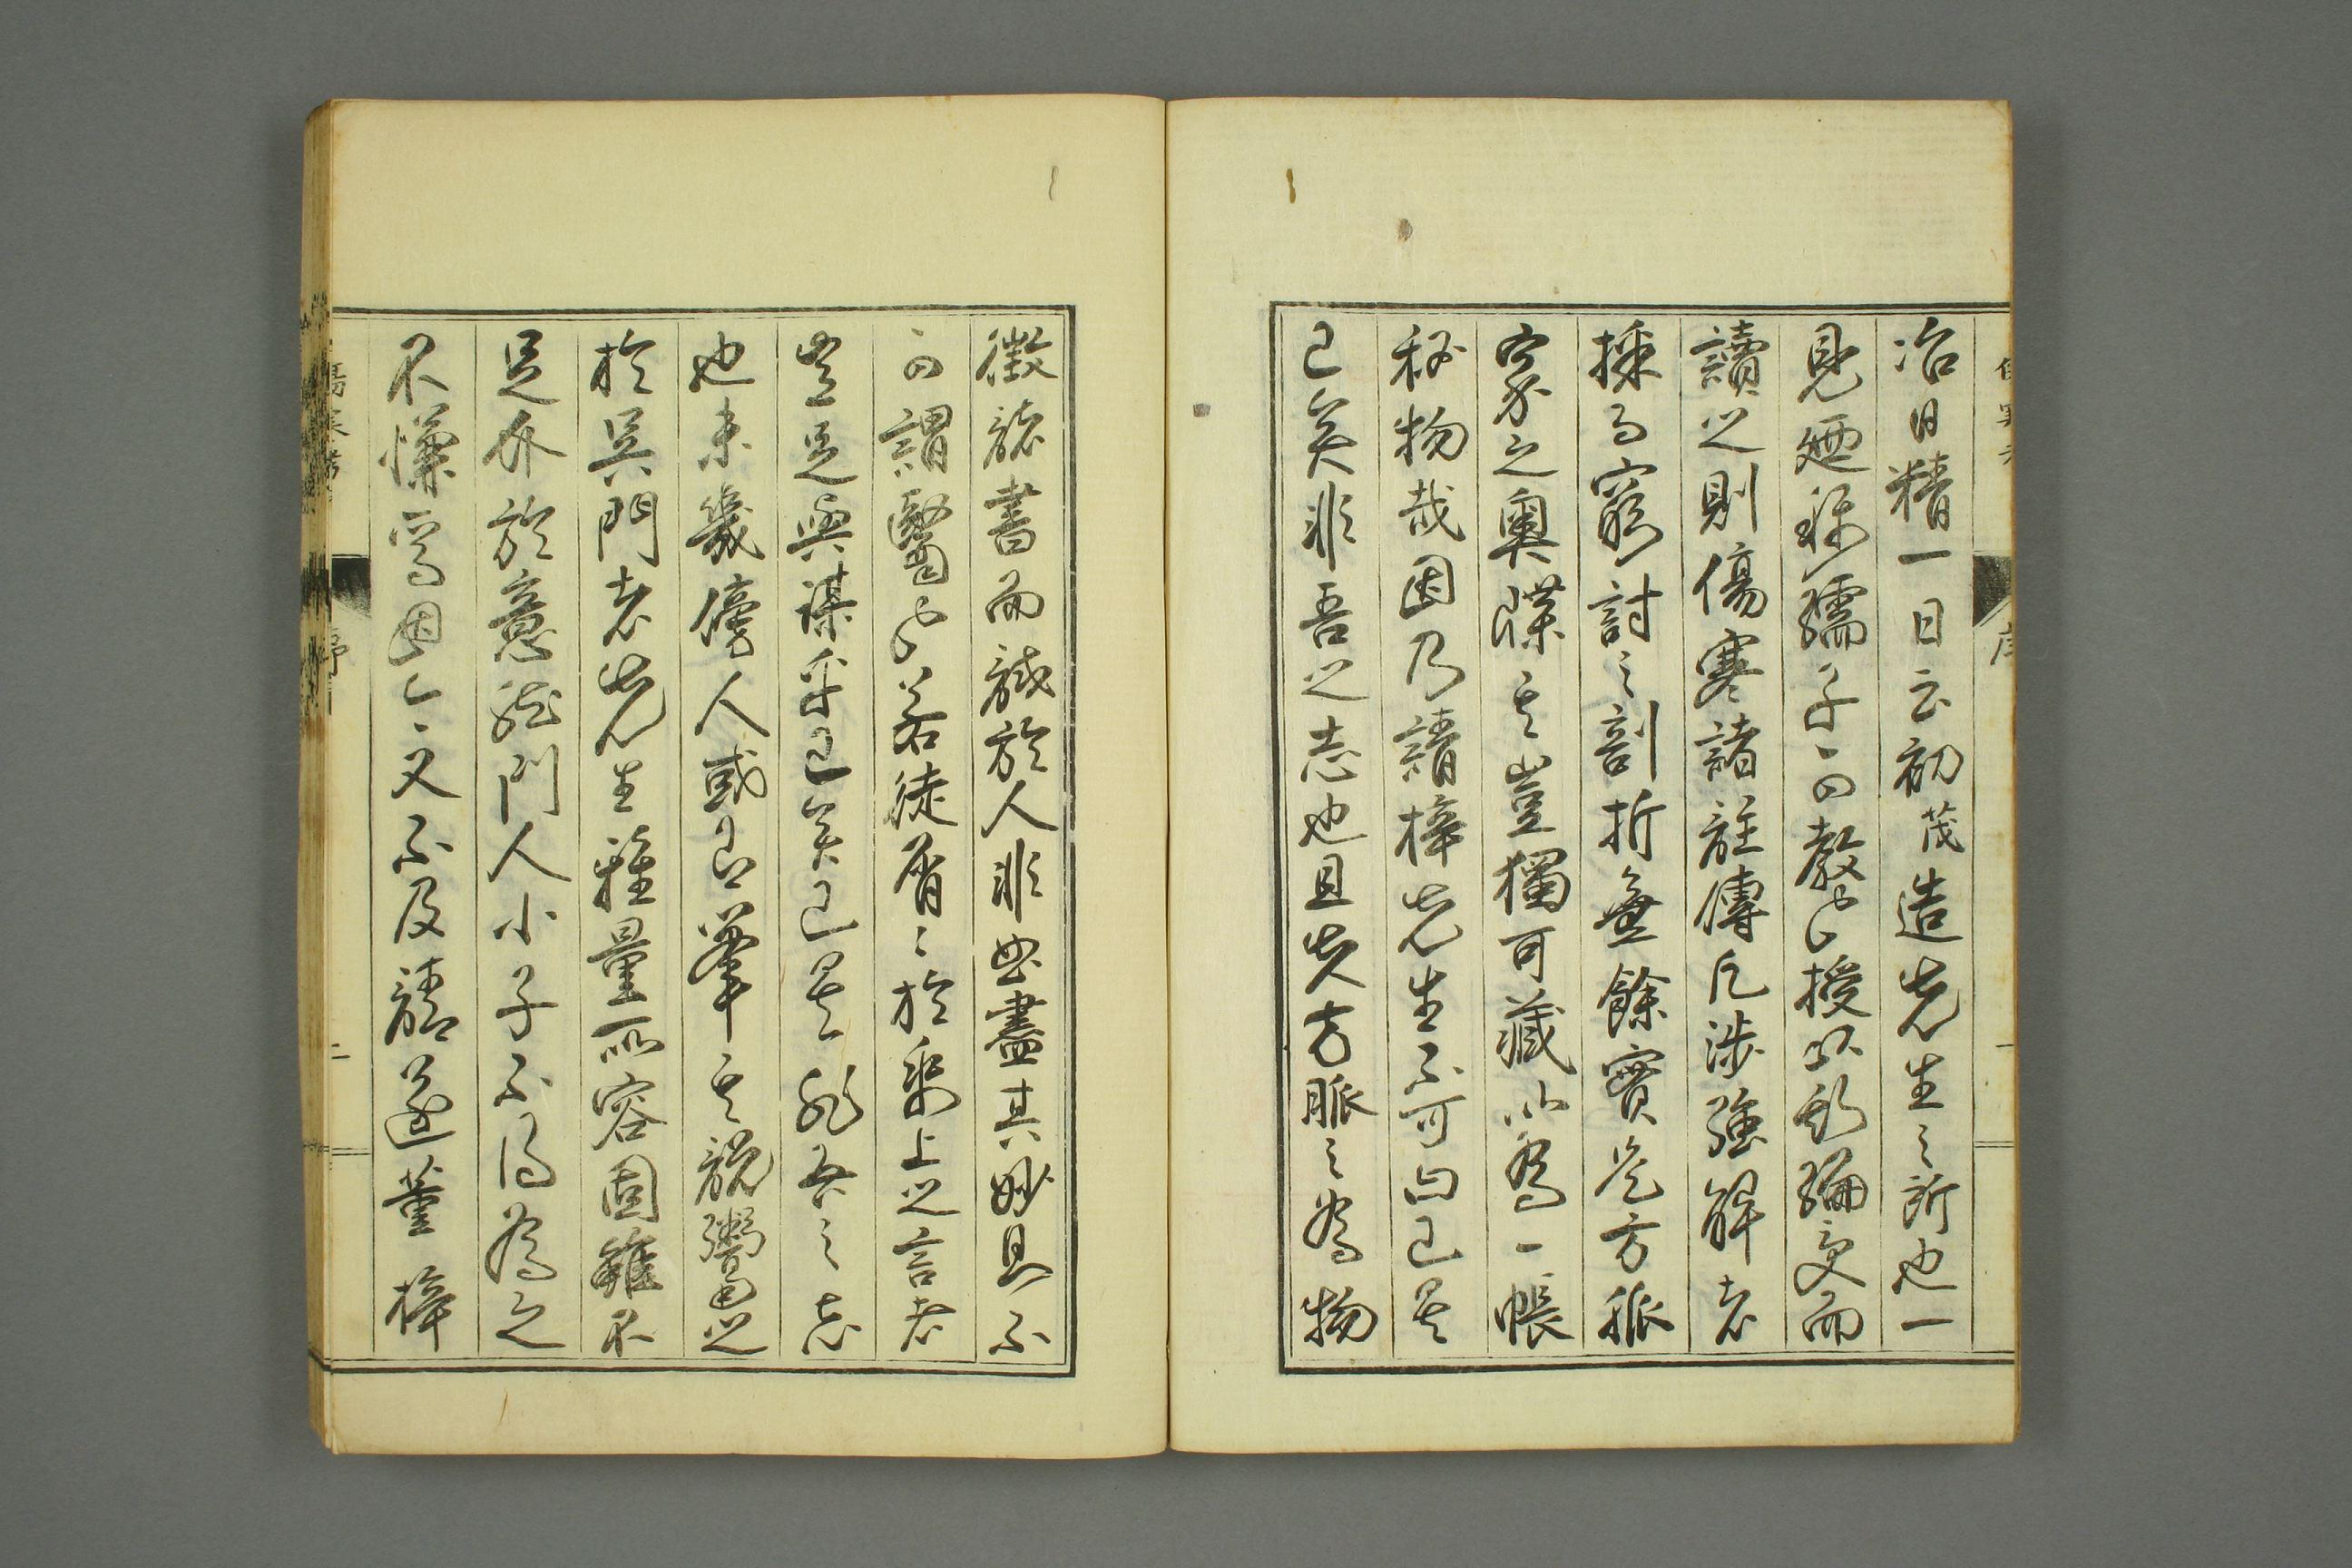 冶日精一日云初茂造先生之所也一
見廼稱孺子可教也授以此編受而
讀之則傷寒諸註傳凡涉強解者
採而窮討之剖折無餘實是方脈
家之奧牒其豈獨可藏以為一帳
秘物哉因乃請梓先生不可曰已矣
已矣非吾之志也且夫方脈之為物
徵諸書而試於人非盡其妙具不
可謂醫也若徒屑屑於紙上之言者
豈足與謀乎已矣已矣非吾之志
也未幾傍人或竊其說鬻之
於吳門者先生雖量所容固雖不
足介於意然門人小子不得為之
不慊焉因又不及請遂董梓
傷寒考
序
一
傷寒考
序
二